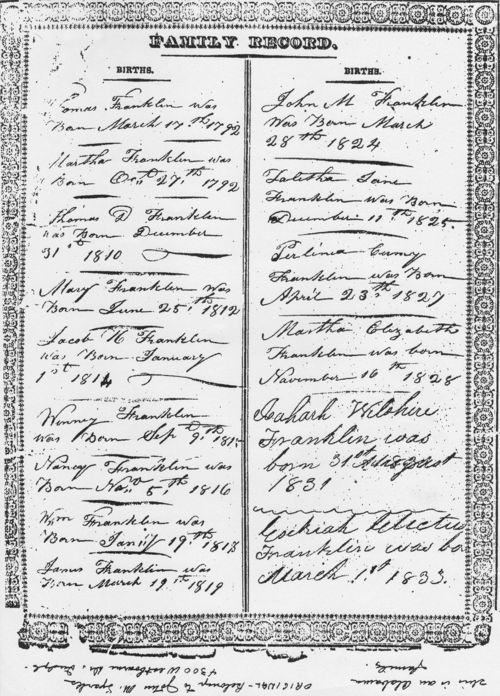 FAMILY RECORD.
BIRTHS.
Tomas Franklin was
Born March 17th 1792
Martha Franklin was
Born Oct 27th 1792
Thomas D Franklin
was Born December
31st 1810
Mary Franklin was
Born June 25th 1812
Jacob N Franklin
was Born January
1st 1814
Winney Franklin
was Born Sep 9th
Nancy Franklin was
Born 5th 1816
Wm Franklin was
Born 19th
James Franklin was
Born March 19th 1819
BIRTHS.
John M Franklin
Was Born March
28th 1824
Talitha Jane
Franklin was Born
December 11th 1825.
Perlinia
Franklin was Born
April 23th 1827
Martha Elizabeth
Franklin was born
November 16th 1828
Wilshire
Franklin was
born 31st August
1831
Franklin was bo
March 1st 1833.
this is an Alabama
family.
ORIGINAL - Belongs to John M.
4300